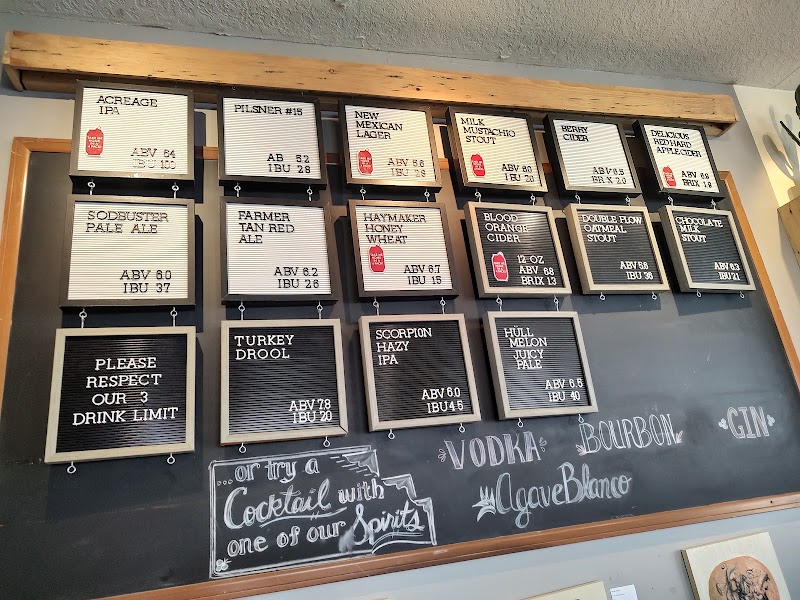 ACREAGE
IPA
ABV 6.4
IBU 100
PILSNER #15
AB 5.2
IBU 28
NEW
MEXICAN
LAGER
ABV 5.6
IBU 28
MILK
MUSTACHIO
STOUT
ABV 6.0
IBU 20
BERRY
CIDER
ABV 6.5
BRX 2.0
DELICIOUS
RED HARD
APPLE CIDER
ABV 6.8
BRIX 1.8
SODBUSTER
PALE ALE
ABV 6.0
IBU 37
FARMER
TAN RED
ALE
ABV 6.2
IBU 26
HAYMAKER
HONEY
WHEAT
ABV 6.7
IBU 15
BLOOD
ORANGE
CIDER
12 OZ
ABV 6.8
BRIX 1.3
DOUBLE PLOW
OATMEAL
STOUT
ABV 5.8
IBU 36
CHOCOLATE
MILK
STOUT
ABV 6.3
IBU 21
PLEASE
RESPECT
OUR 3
DRINK LIMIT
TURKEY
DROOL
ABV 7.8
IBU 20
SCORPION
HAZY
IPA
ABV 6.0
IBU 45
HÜLL
MELON
JUICY
PALE
ABV 6.5
IBU 40
VODKA BOURBON GIN
Agave Blanco
...or try a
Cocktail with
one of our Spirits